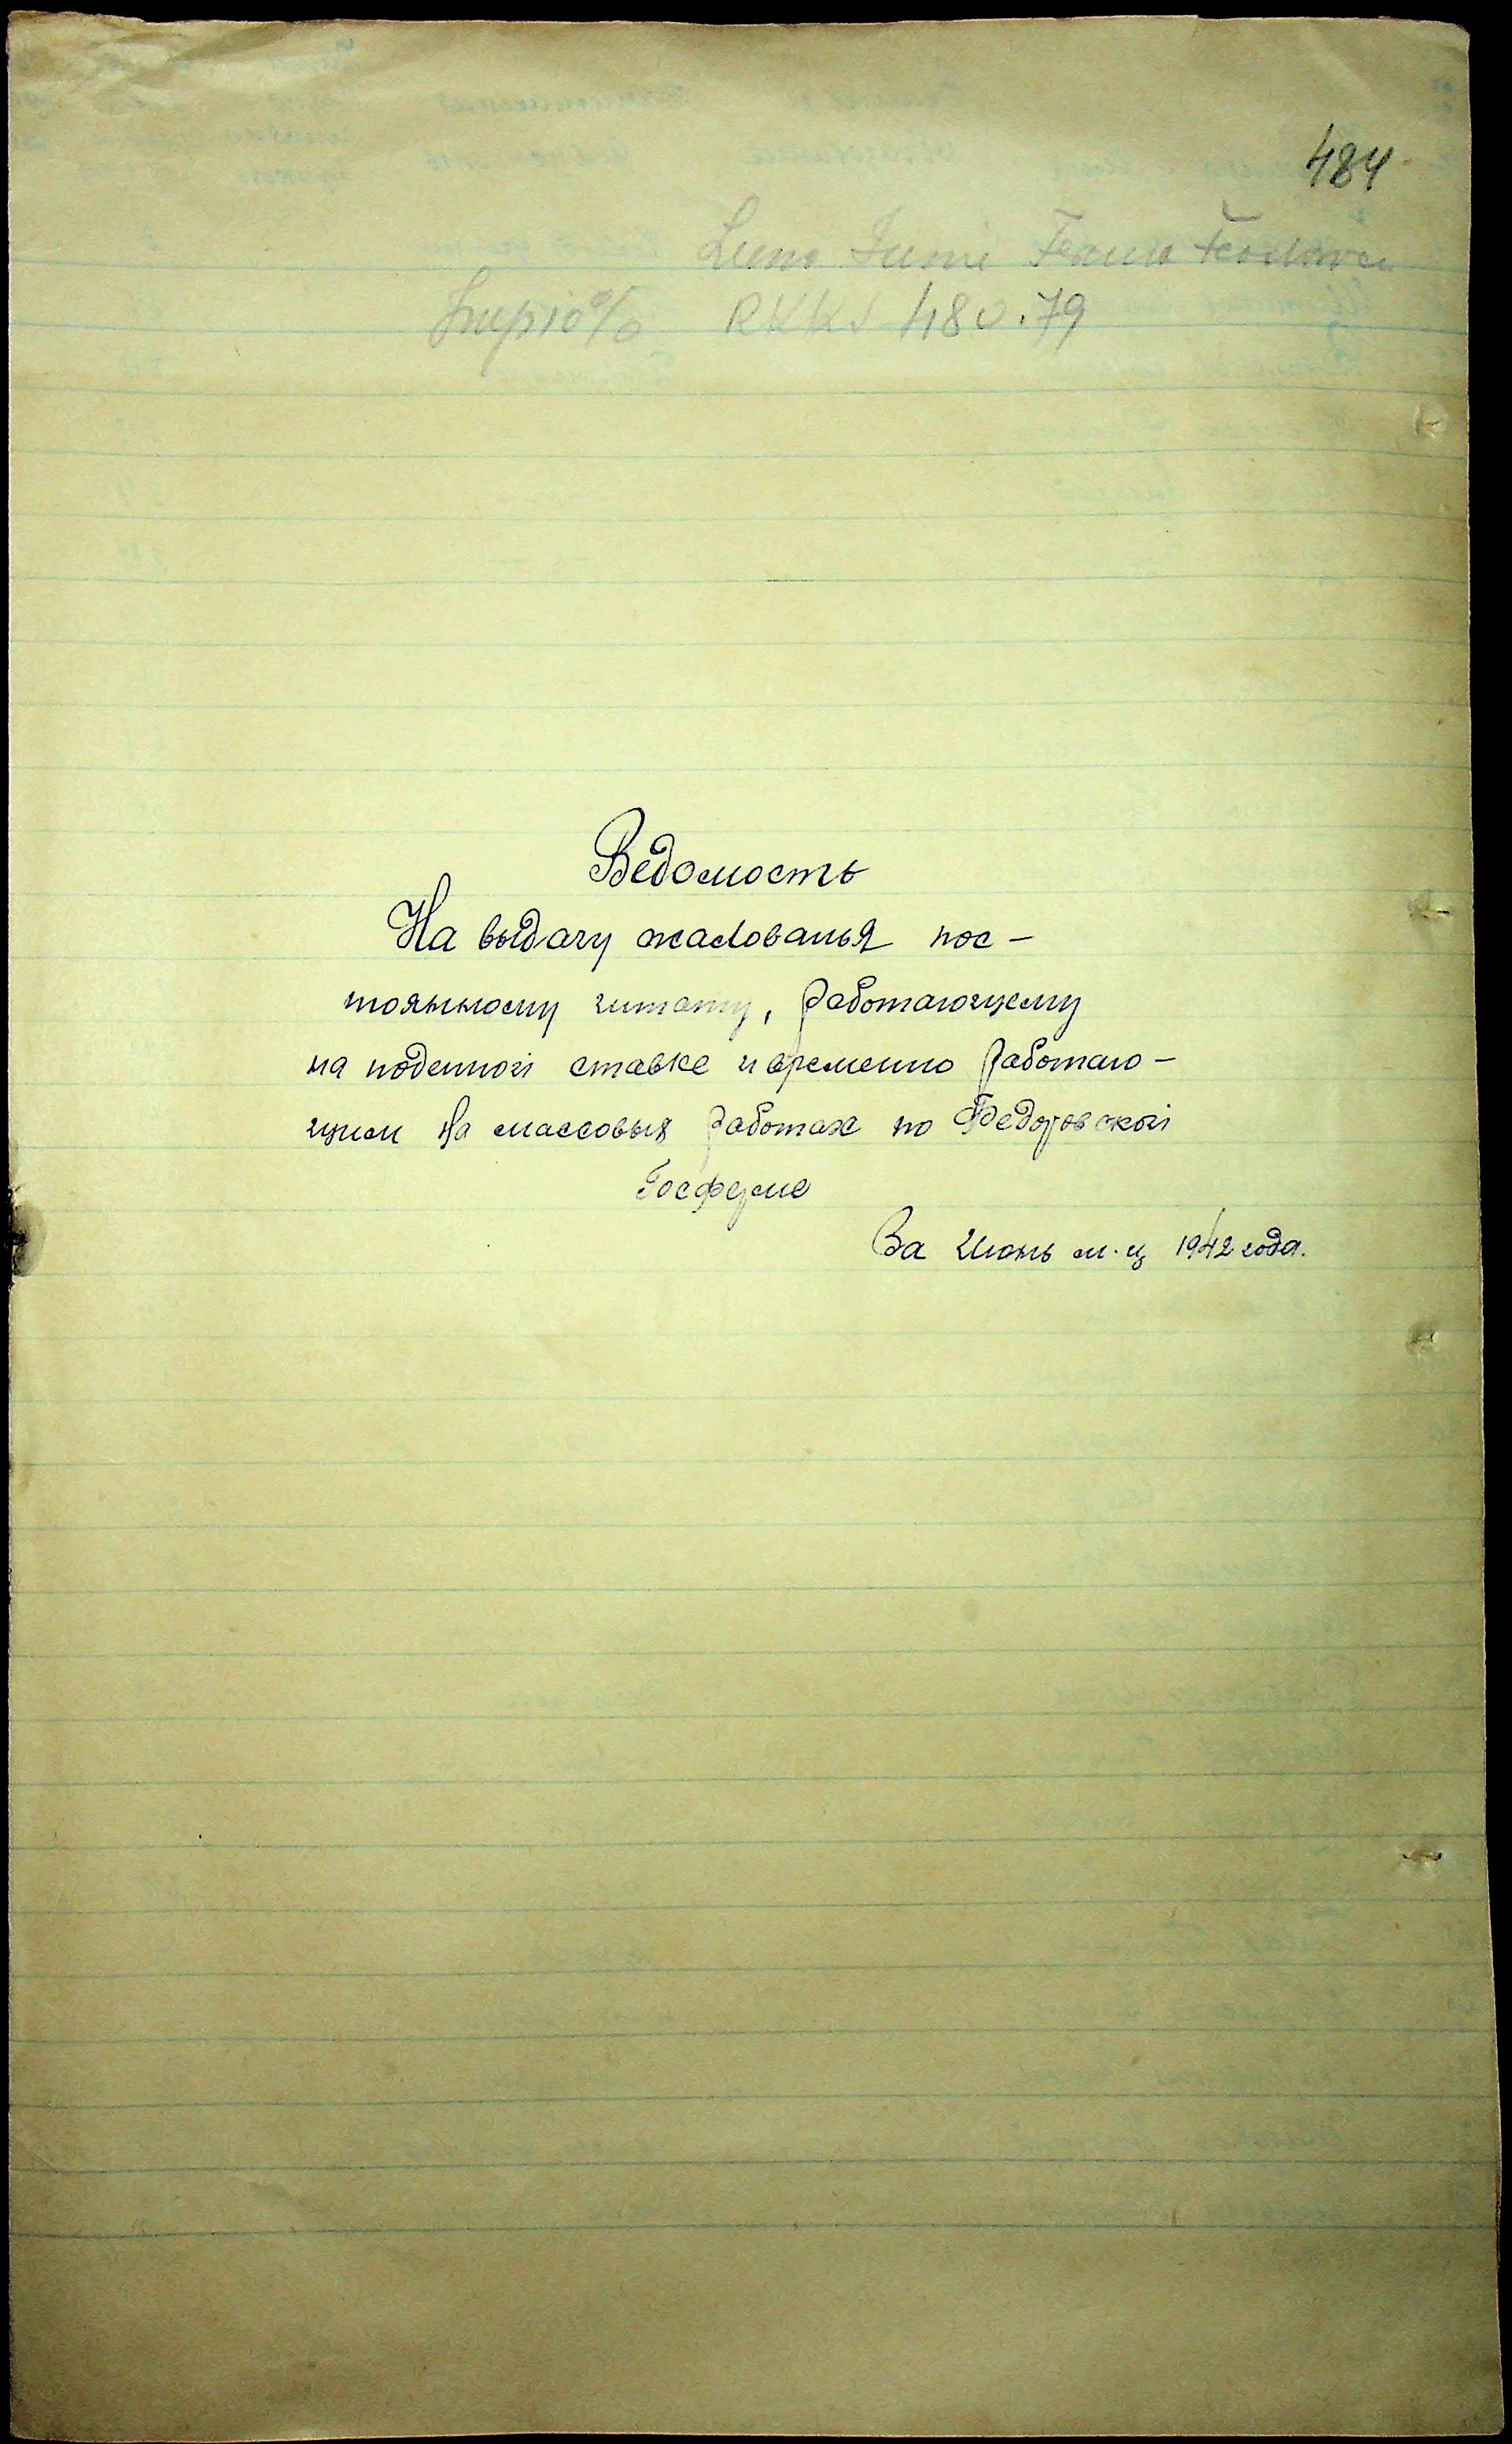 484
Luna Iunie Ferma Feodorovca
Imp 10% RKKS 480.79
Ведомость
На выдачу жалованья пос-
тоянному штату, работающему
на поденной ставке и временно работаю-
щим на массовых работах по Федоровской
Госферме
За Июнь м-ц 1942 года.